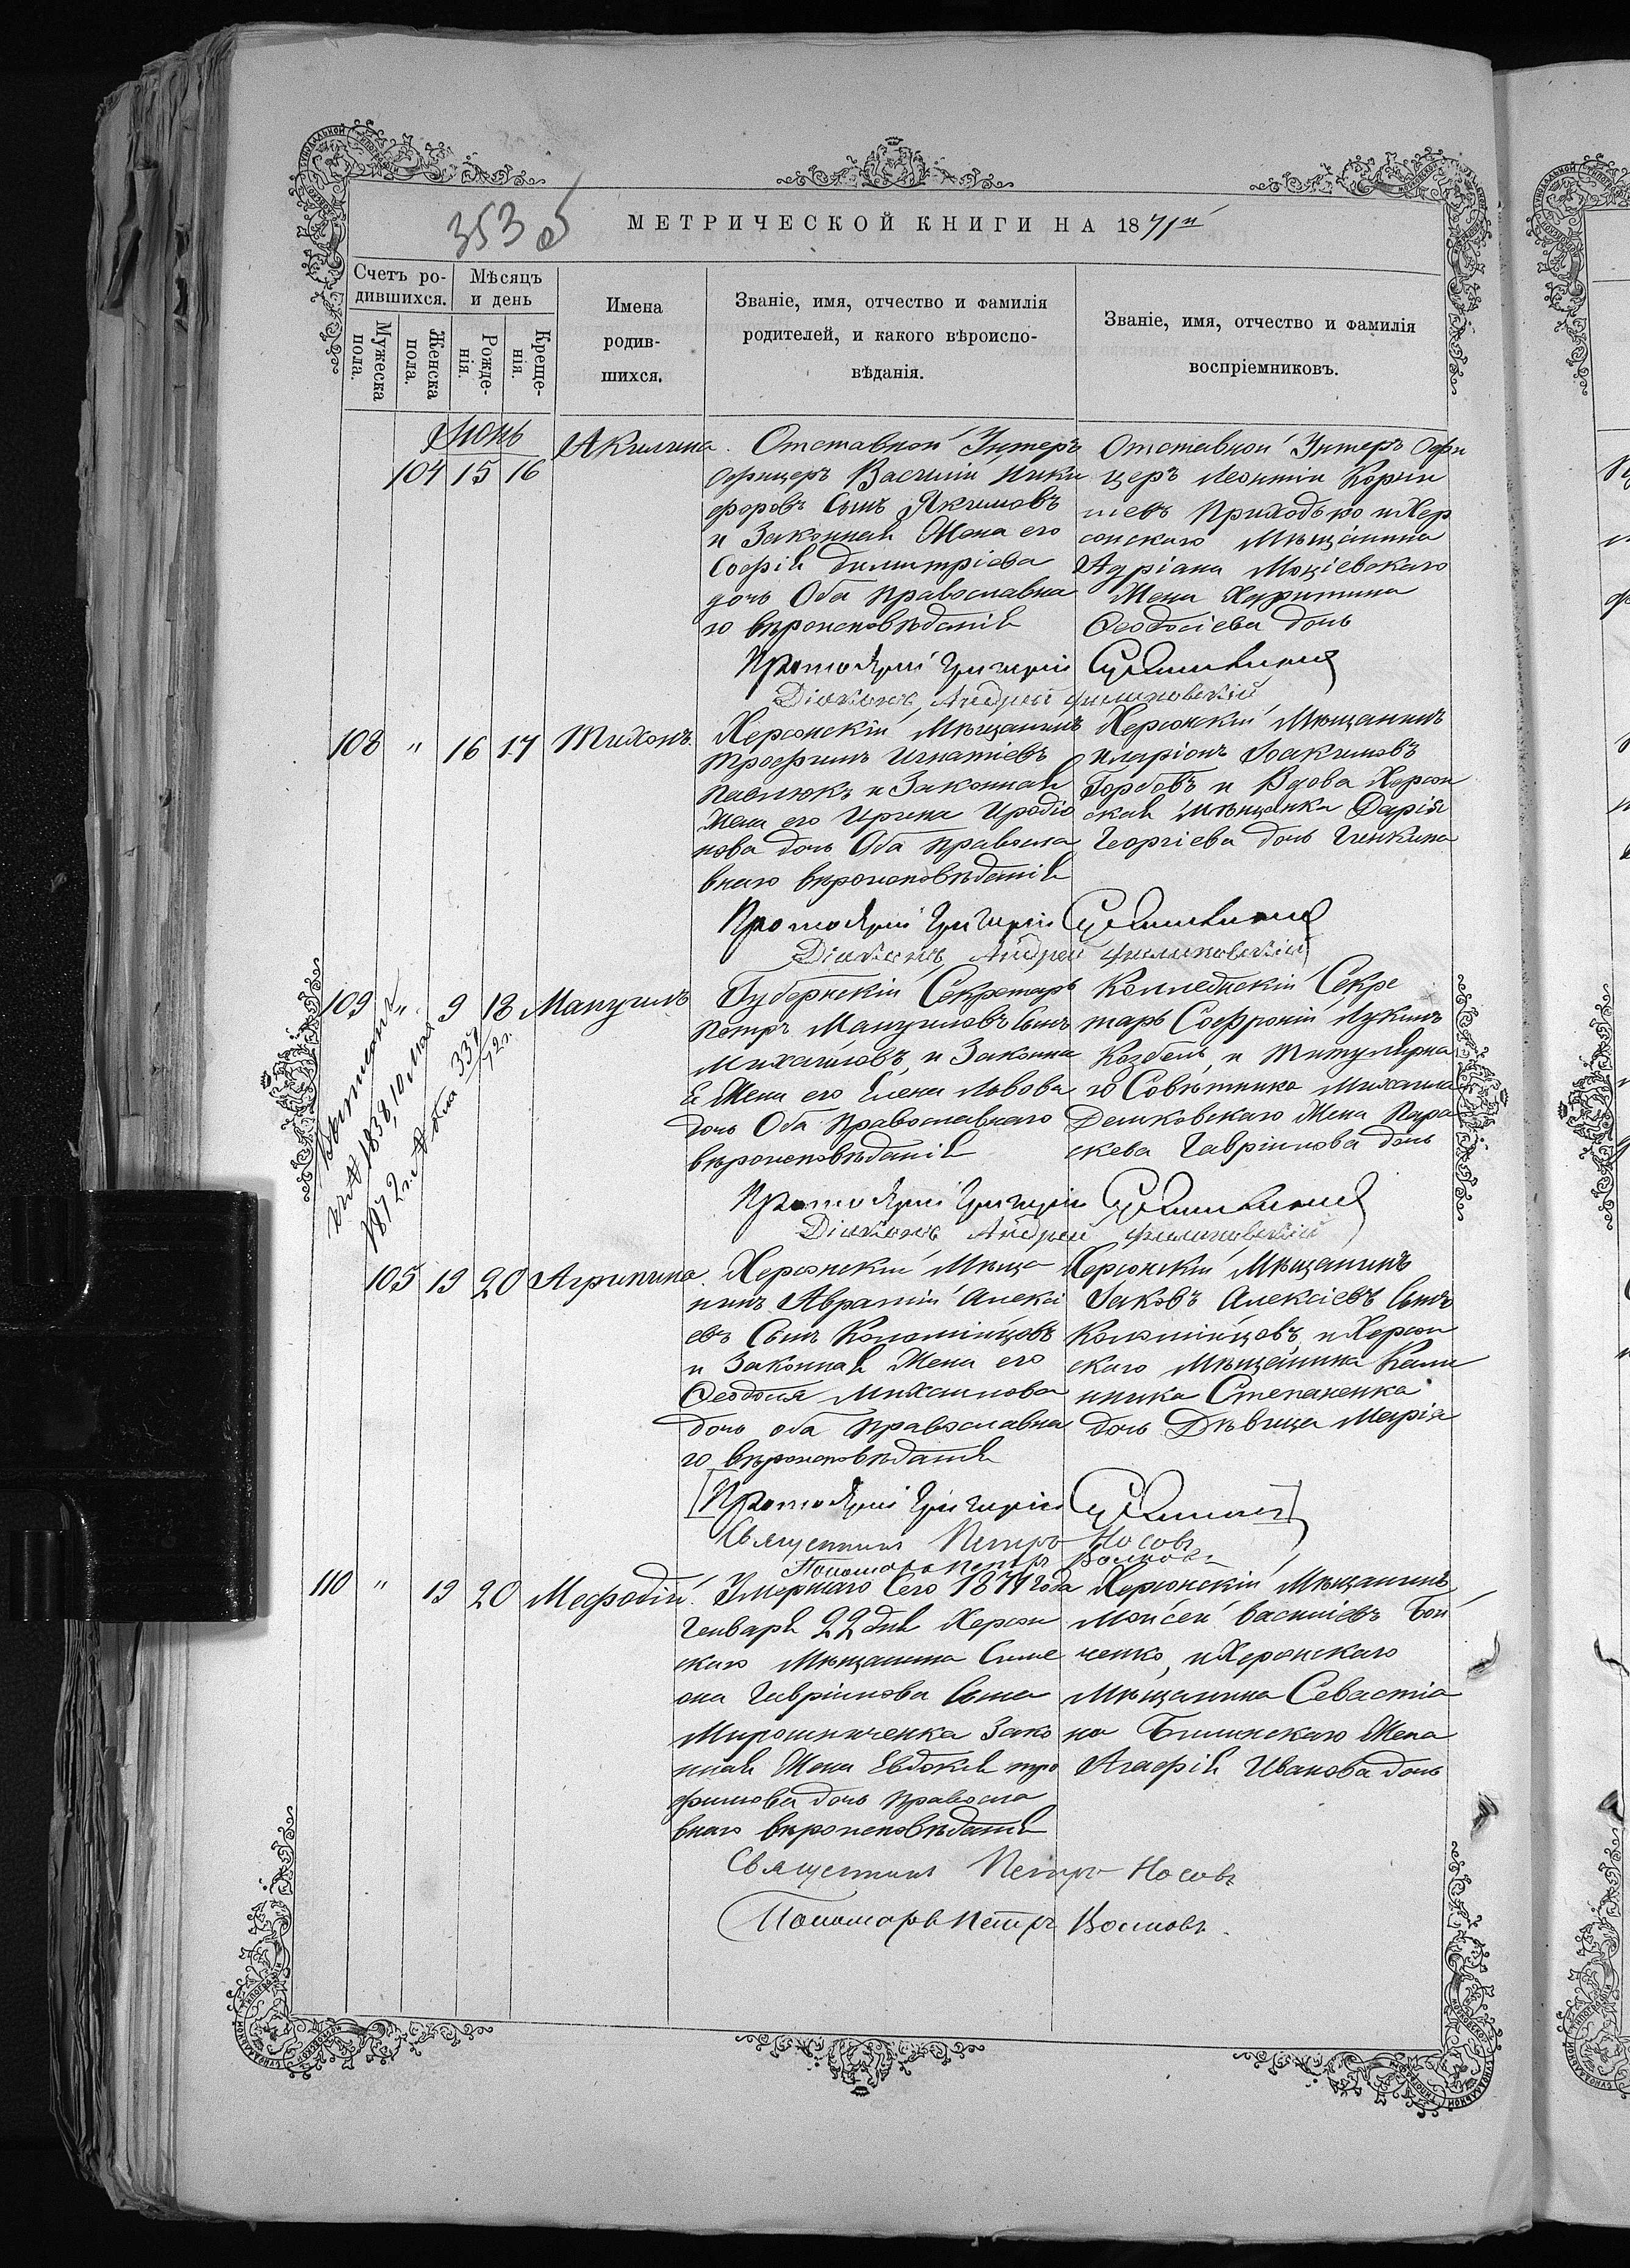 353 об
МЕТРИЧЕСКОЙ КНИГИ НА 1871й
Счетъ ро-
дившихся.
Мѣсяцъ
и день
Мужеска
пола.
Женска
пола.
Рожде-
нія.
Креще-
нія.
Имена
родив-
шихся.
Званіе, имя, отчество и фамилія
родителей, и какого вѣроиспо-
вѣданія.
Званіе, имя, отчество и фамилія
воспріемниковъ.
Июнь
104 15 16
Акилина.
Отставной Унтеръ
офицеръ Василій Ники
форовъ Сынъ Якимовъ
и Законная Жена его
Софія Димитріева
дочь Оба Православна
го вѣроисповѣданія
Отставной Унтеръ Офи
церъ Леонтій Корни
ліевъ Приходько и Хер
сонскаго Мѣщанина
Адріана Моціевскаго
Жена Харитина
Ѳеодосіева дочь
Протоіерей Григорій
Діаконъ Андрей Филиповскій
108 " 16 17
Тихонъ
Херсонскій Мѣщанинъ
Трофимъ Игнатіевъ
Павлюкъ и Законная
Жена его Ирина Иродіо
нова дочь Оба Правосла
внаго вѣроисповѣданія
Херсонскій Мѣщанинъ
Иларіонъ Іоакимовъ
Горбовъ и Вдова Херсон
ская Мѣщанка Дарія
Георгіева дочь
Протоіерей Григорій
Діаконъ Андрей Филиповскій
109 " 9 18
Мануилъ
Губернскій Секретарь
Петръ Мануиловъ Сынъ
Михайловъ и Законна
я Жена его Елена Львова
дочь Оба Православнаго
вѣроисповѣданія
Коллежскій Секре
тарь Софроній Лукинъ
Козбель, и Титулярна
го Совѣтника Михаила
Дешковскаго Жена Пара
скева Гавріилова дочь
1838, 10 Мая
1872 г. 337/72 г.
Протоіерей Григорій
Діаконъ Андрей Филиповскій
105 19 20
Агрипина.
Херсонскій Мѣща
нинъ Авраамій Алексі
евъ Сынъ Коломійцовъ
и Законная Жена его
Ѳеодосія Михаилова
дочь оба Православна
го вѣроисповѣданія
Херсонскій Мѣщанинъ
Іаковъ Алексіевъ Сынъ
Коломійцовъ, и Херсон
скаго Мѣщанина Кали
нника Степаненка
дочь Дѣвица Марія
[Протоіерей Григорій
Священникъ Петръ Носовъ
Пономарь Петръ Волковъ
110 " 19 20
Мефодій.
Умершаго Сего 1871 года
Генваря 22 дня Херсон
скаго Мѣщанина Симе
она Гавріилова Сына
Мирошниченка Зако
нная Жена Евдокія Тро
фимова дочь Правосла
внаго вѣроисповѣданія
Херсонскій Мѣщанинъ
Мойсей Василіевъ Бой
ченко, и Херсонскаго
Мѣщанина Севастіа
на Билинскаго Жена
Агафія Иванова дочь
Священникъ Петръ Носовъ
Пономарь Петръ Волковъ.